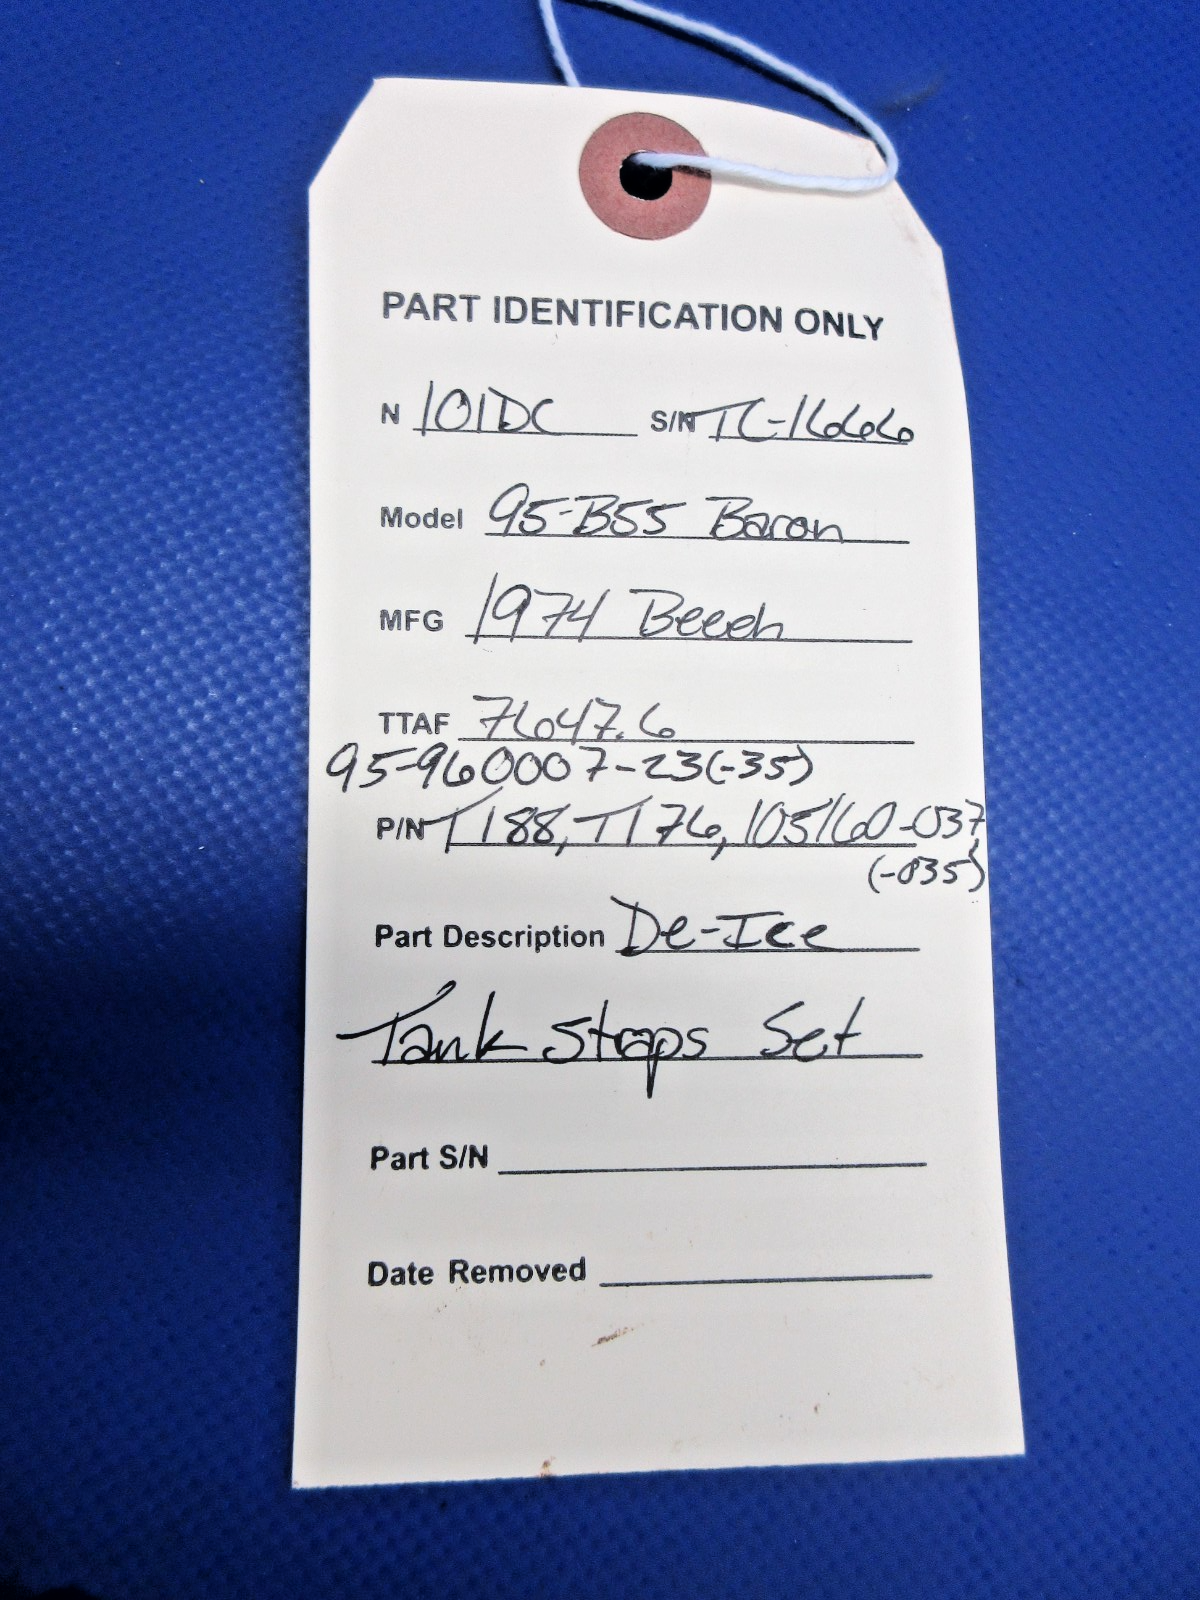 PART IDENTIFICATION ONLY
N 101DC S/N TC-1666
Model 95-B55 Baron
MFG 1974 Beech
TTAF 7647.6
95-960007-23(-35)
P/N T188, T176, 105160-037
(-035)
Part Description De-Ice
Tank Straps Set
Part S/N
Date Removed